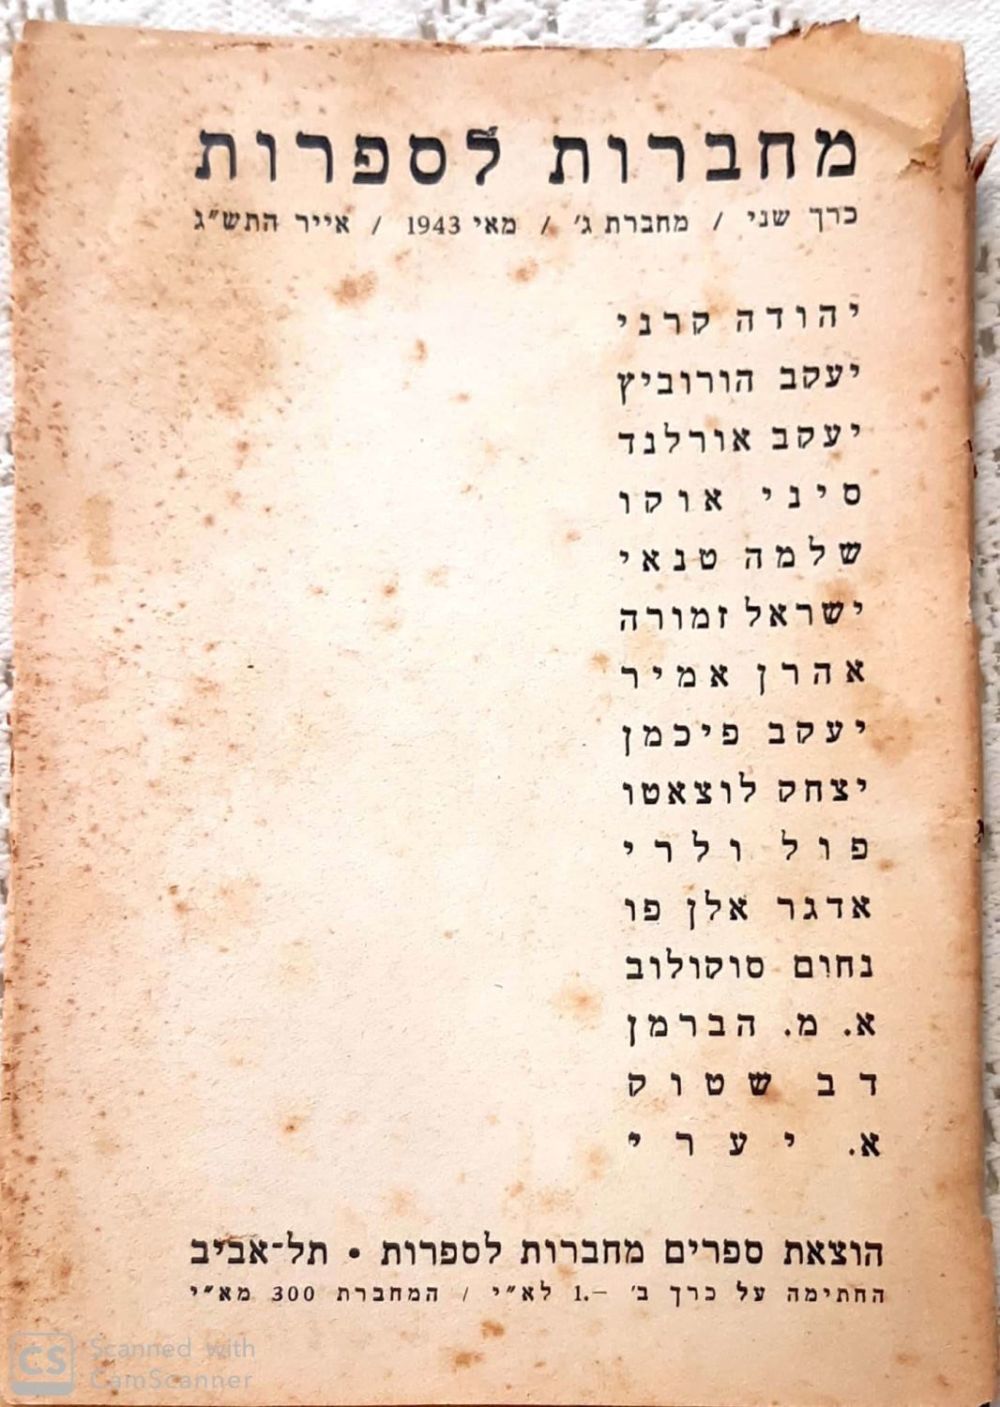 מחברות לספרות
כרך שני / מחברת ג' / מאי 1943 / אייר התש"ג
יהודה קרני
יעקב הורוביץ
יעקב אורלנד
סיני אוקו
שלמה טנאי
ישראל זמורה
אהרן אמיר
יעקב פיכמן
יצחק לוצאטו
פול ולרי
אדגר אלן פו
נחום סוקולוב
א. מ. הברמן
דב שטוק
א. יערי
הוצאת ספרים מחברות לספרות • תל-אביב
החתימה על כרך ב' 1.– לא"י / המחברת 300 מא"י
CS Scanned with
CamScanner